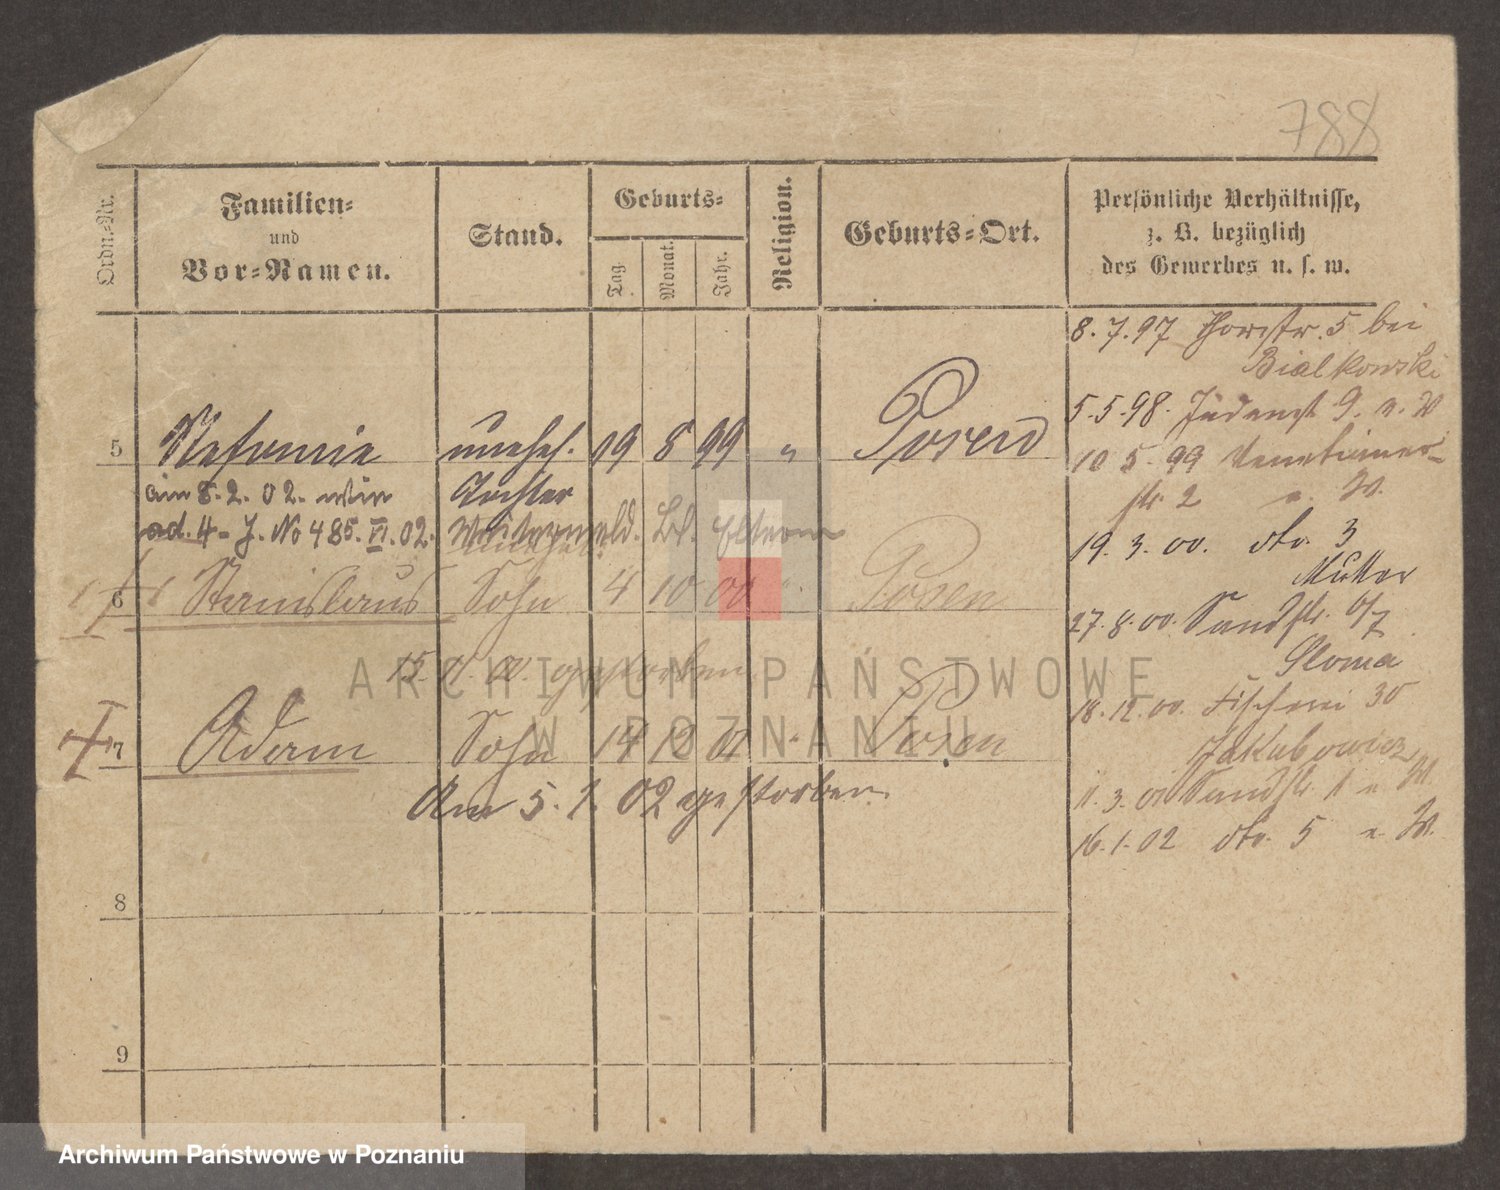 788
Ordn.-Nr.
Familien-
und
Vor-Namen.
Stand.
Geburts-
Tag
Monat.
Jahr.
Religion.
Geburts-Ort.
Persönliche Verhältnisse,
z. B. bezüglich
des Gewerbes u. s. w.
8.7.97 Thorstr. 5 bei
Bialkowski
5.5.98. Judenst 9. n. W
10 5. 99 Venetianer-
str 2 n. W.
19. 3. 00. dto. 3
Mutter
27. 8. 00. Sandstr. 6/7
Gloma
18. 12. 00. Fischerei 30
Jakubowicz
1. 3. 01 Sandstr. 1 n W.
16. 1. 02 dto. 5 n W.
5 Stefania unehel. 19 8 99 " Posen
am 8. 2. 02. Tochter
ad. 4- J. No 485. VI. 02. Eltern
6 Stanislaus Sohn 4 10 00 " Posen
15. 11. 00. gestorben
7 Adam Sohn 14 12 01 " Posen
Am 5. 1. 02 gestorben
8
9
ARCHIWUM PAŃSTWOWE
W POZNANIU
Archiwum Państwowe w Poznaniu